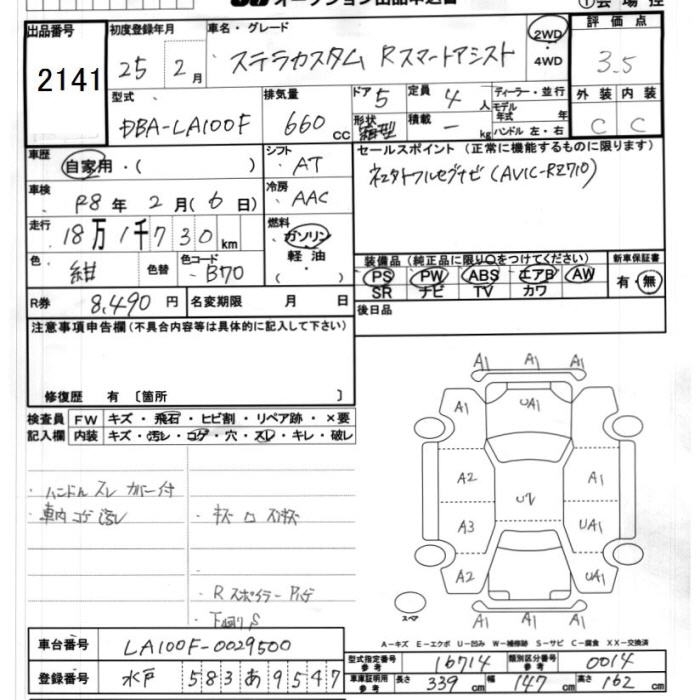 オークション出品申込書 ①会場控
出品番号 2141
初度登録年月 25年 2月
車名・グレード ステラカスタム Rスマートアシスト
2WD・4WD
評価点 3.5
外装 内装
C C
型式 DBA-LA100F
排気量 660 cc
ドア 5
形状 箱型
定員 4人
積載 － kg
ディーラー・並行
モデル年式 年
ハンドル 左・右
車歴 自家用・( )
シフト AT
セールスポイント (正常に機能するものに限ります)
車検 R8年 2月(6日)
冷房 AAC
走行 18万1千730km
燃料 ガソリン 軽油 ( )
色 紺 色替
色コード B70
装備品 (純正品に限り○をつけてください) 新車保証書
PS PW ABS エアB AW 有・無
SR ナビ TV カワ
R券 8,490円
名変期限 月 日
後日品
注意事項申告欄(不具合内容等は具体的に記入して下さい)
修復歴 有 〔箇所 〕
検査員記入欄
FW キズ・飛石・ヒビ割・リペア跡・×要
内装 キズ・汚レ・コゲ・穴・スレ・キレ・破レ
・ハンドル スレ カバー付
・車内 コゲ 汚レ
・Rスポイラー
・下廻りS
A1 A1 A1
A1 UA1 A1
A2 A1
A3 U2 UA1
A2 UA1
A1 A1 A1
スペア
A－キズ E－エクボ U－凹み W－補修跡 S－サビ C－腐食 XX－交換済
車台番号 LA100F-0029500
登録番号 水戸 583 あ 9547
型式指定番号参考 16714 類別区分番号参考 0014
車庫証明用参考 長さ 339cm 幅 147cm 高さ 162cm